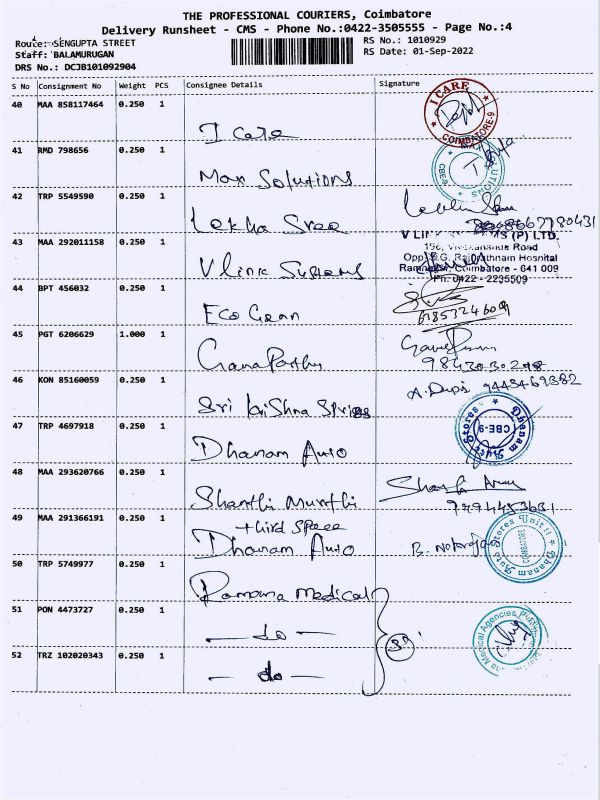 THE PROFESSIONAL COURIERS, Coimbatore
Delivery Runsheet - CMS - Phone No.:0422-3505555 - Page No.:4
Route: SENGUPTA STREET
RS No.: 1010929
Staff: BALAMURUGAN
RS Date: 01-Sep-2022
DRS No.: DCJB101092904
S No Consignment No Weight PCS Consignee Details Signature
40 MAA 858117464 0.250 1
I Care
I CARE COIMBATORE-9
41 RMD 798656 0.250 1
Max Solutions
42 TRP 5549590 0.250 1
Lekha Sree
43 MAA 292011158 0.250 1
V Link Systems
V LINK (P) LTD.
196, Vivekanande Road
Opp
Hospital
Coimbatore - 641 009
Ph: 0422 - 2235509
44 BPT 456032 0.250 1
Eco Gean
45 PGT 6206629 1.000 1
Ganaparthy
46 KON 85160059 0.250 1
Sri Krishna
9443469382
47 TRP 4697918 0.250 1
Dhanam Auto
Dhanam Auto Stores CBE-9
48 MAA 293620766 0.250 1
Shanthi Murthi
49 MAA 291366191 0.250 1
+ third space
Dhanam Auto
Dhanam Auto Stores Unit II COIMBATORE
50 TRP 5749977 0.250 1
Ramana Medical
51 PON 4473727 0.250 1
— do —
Medical Agencies
52 TRZ 102020343 0.250 1
— do —